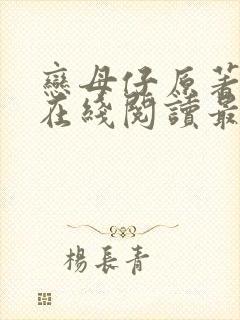 戀母仔原著
在綫閱讀最
楊長青